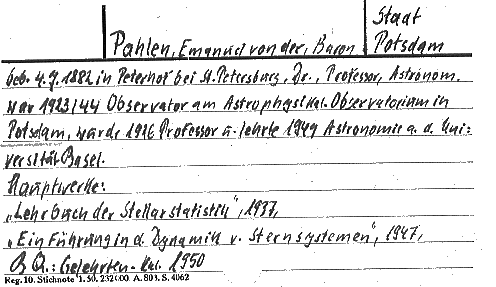 Staat
Pahlen, Emanuel von der, Baron Potsdam
Geb. 4.7.1882 in Peterhof bei St. Petersburg, Dr., Professor, Astronom.
war 1923/44 Observator am Astrophysikal. Observatorium in
Potsdam, wurde 1926 Professor u. lehrte 1949 Astronomie a. d. Uni-
versität Basel.
Hauptwerke:
„Lehrbuch der Stellarstatistik“, 1937,
„Einführung in d. Dynamik v. Sternsystemen“, 1947,
B Q.: Gelehrten-Kal. 1950
Reg. 10. Stichnote 1. 50. 232000. A. 803. S. 4062